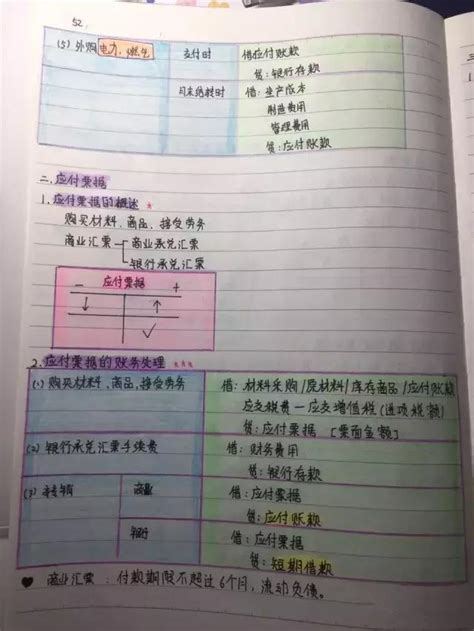 52
(5) 外购电力、燃气 支付时 借:应付账款
贷:银行存款
月末结转时 借:生产成本
制造费用
管理费用
贷:应付账款
二.应付票据
1.应付票据的概述 *
购买材料、商品、接受劳务
商业汇票 商业承兑汇票
银行承兑汇票
- 应付票据 +
↓ ↑
✓
2.应付票据的账务处理 ***
(1) 购买材料、商品、接受劳务 借:材料采购/原材料/库存商品/应付账款
应交税费-应交增值税(进项税额)
贷:应付票据 [票面金额]
(2) 银行承兑汇票手续费 借:财务费用
贷:银行存款
(3) 转销 商业 借:应付票据
贷:应付账款
银行 借:应付票据
贷:短期借款
♥ 商业汇票:付款期限不超过6个月,流动负债。